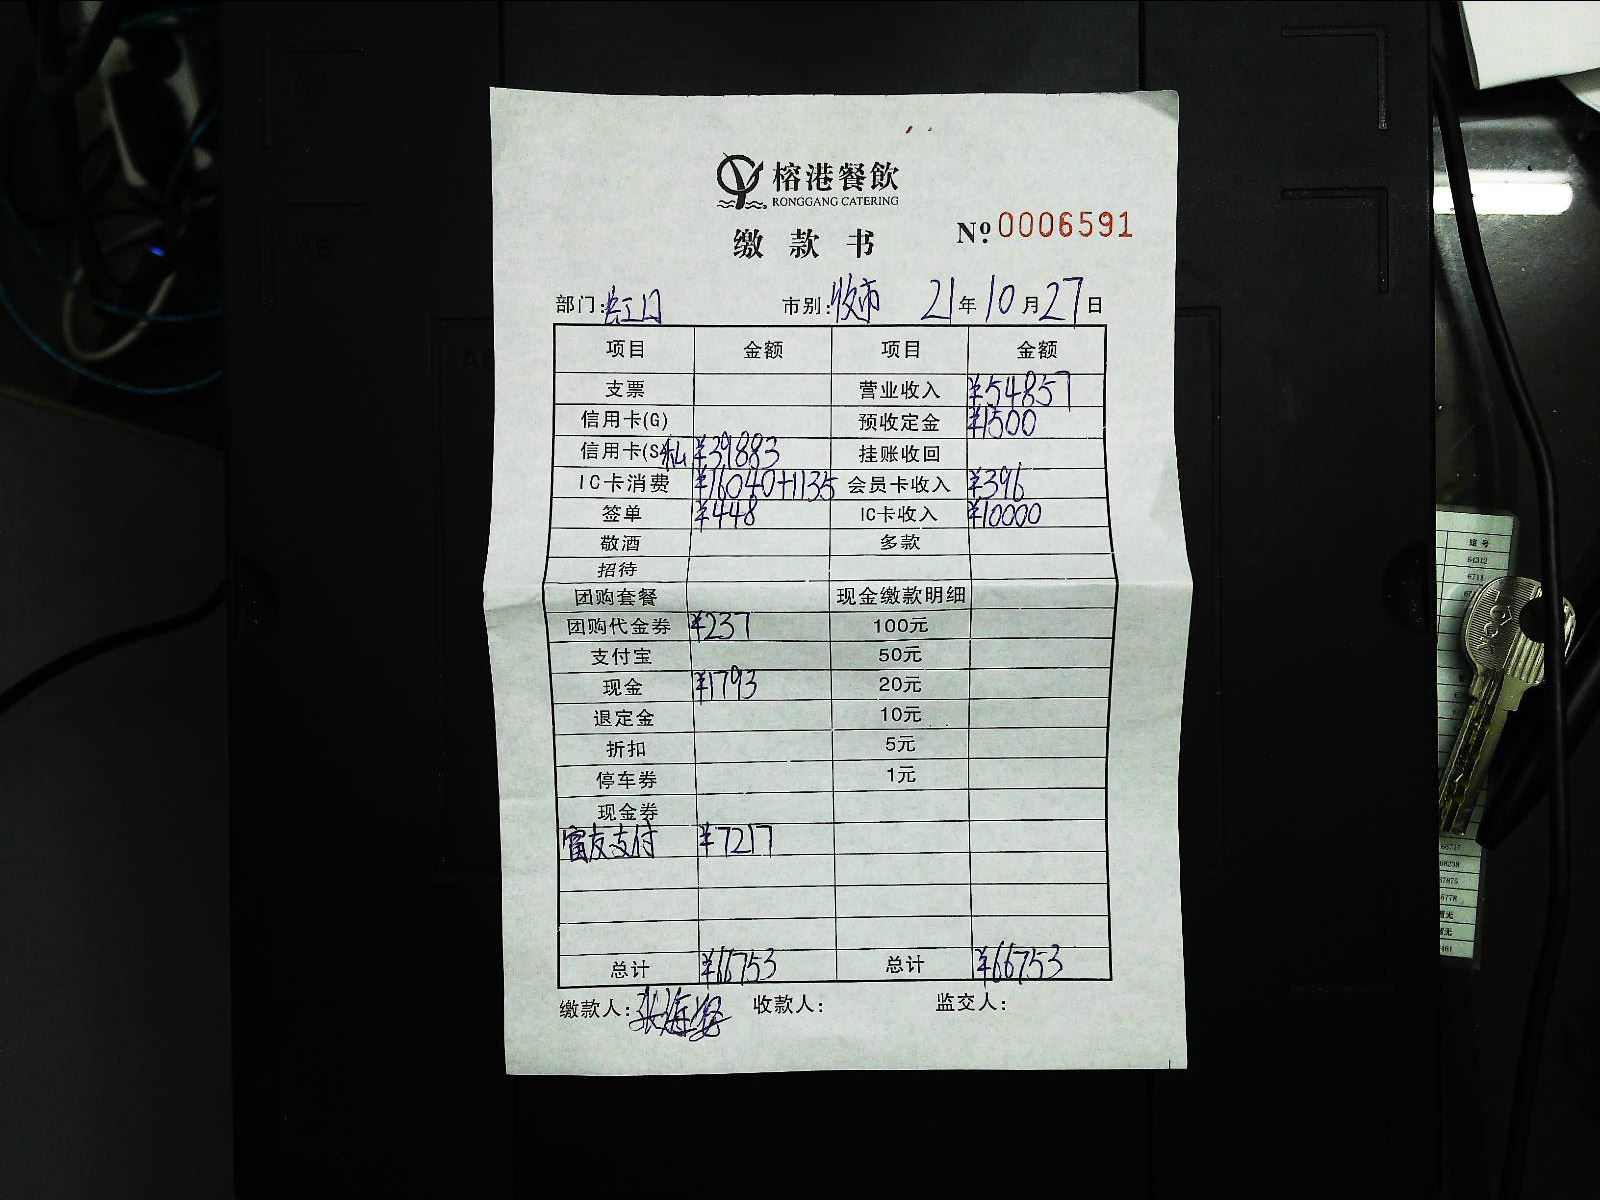 榕港餐飲
RONGGANG CATERING
缴款书
№ 0006591
部门: 虹口 市别: 收市 21年10月27日
项目 金额 项目 金额
支票 营业收入 ¥54857
信用卡(G) 预收定金 ¥1500
信用卡(S 私 ¥39883 挂账收回
IC卡消费 ¥16040+1135 会员卡收入 ¥396
签单 ¥448 IC卡收入 ¥10000
敬酒 多款
招待
团购套餐 现金缴款明细
团购代金券 ¥237 100元
支付宝 50元
现金 ¥1793 20元
退定金 10元
折扣 5元
停车券 1元
现金券
富友支付 ¥7217
总计 ¥66753 总计 ¥66753
缴款人: 收款人: 监交人:
64312
6711